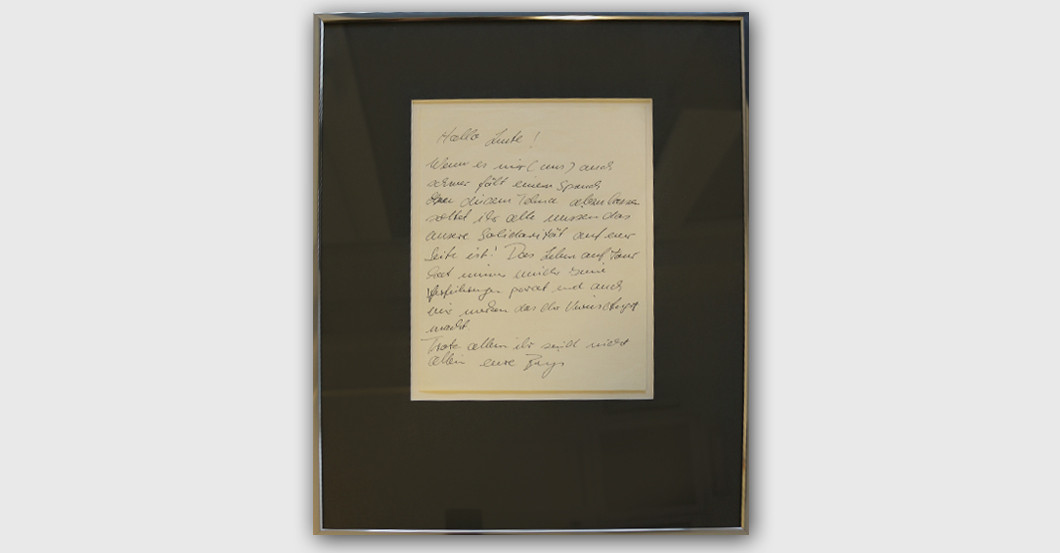 Hallo Leute!
Wenn es mir (uns) auch
schwer fält einem Spruch
diesem Tema
solltet ihr alle wissen das
unsere Solidarität auf eure
Seite ist! Das Leben auf Tour
hat immer wieder seine
Verführungen parat und auch
wir
macht
Trotz allem ihr seid nicht
allein eure Jungs